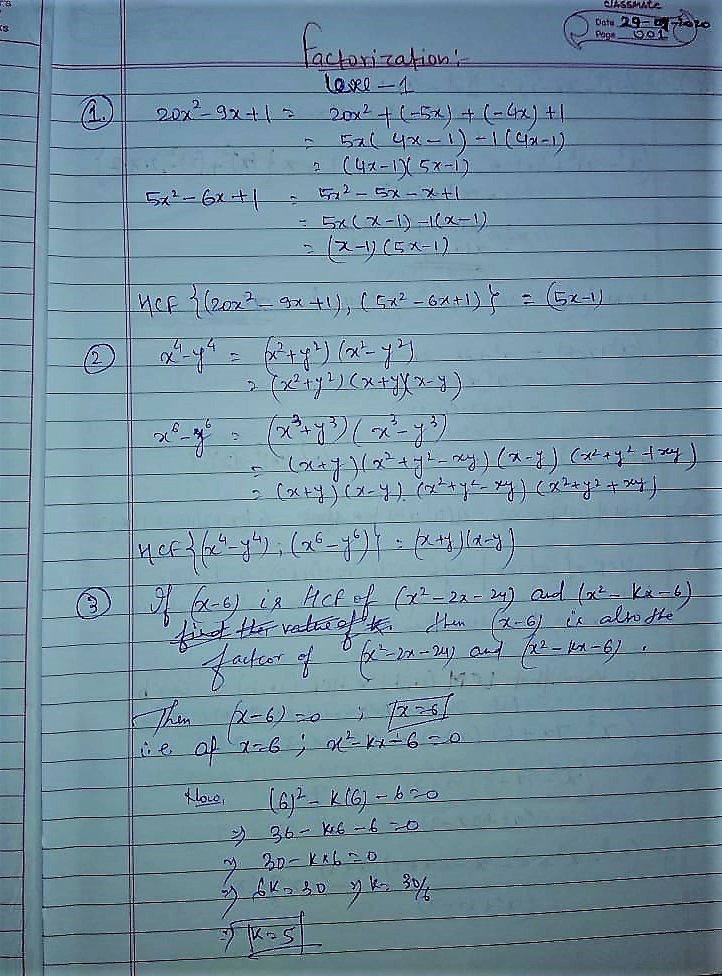 CLASSMATE
Date 29-09-2020
Page 001
Factorization:-
Level-1
1. 20x²-9x+1 = 20x² + (-5x) + (-4x) +1
= 5x( 4x-1) -1(4x-1)
= (4x-1)(5x-1)
5x²-6x+1 = 5x²-5x-x+1
= 5x(x-1)-1(x-1)
= (x-1)(5x-1)
HCF {(20x²-9x+1), (5x²-6x+1)} = (5x-1)
2 x⁴-y⁴ = (x²+y²)(x²-y²)
= (x²+y²)(x+y)(x-y)
x⁶-y⁶ = (x³+y³)(x³-y³)
= (x+y)(x²+y²-xy)(x-y)(x²+y²+xy)
= (x+y)(x-y)(x²+y²-xy)(x²+y²+xy)
HCF{(x⁴-y⁴);(x⁶-y⁶)} = (x+y)(x-y)
3 If (x-6) is HCF of (x²-2x-24) and (x²-kx-6)
find the value of k. then (x-6) is also the
factor of (x²-2x-24) and (x²-kx-6).
Then (x-6)=0 ; x=6
i.e at x=6 ; x²-kx-6=0
Now, (6)²-k(6)-6=0
⇒ 36-k×6-6=0
⇒ 30-k×6=0
⇒ 6k=30 ⇒ k=30/6
⇒ k=5